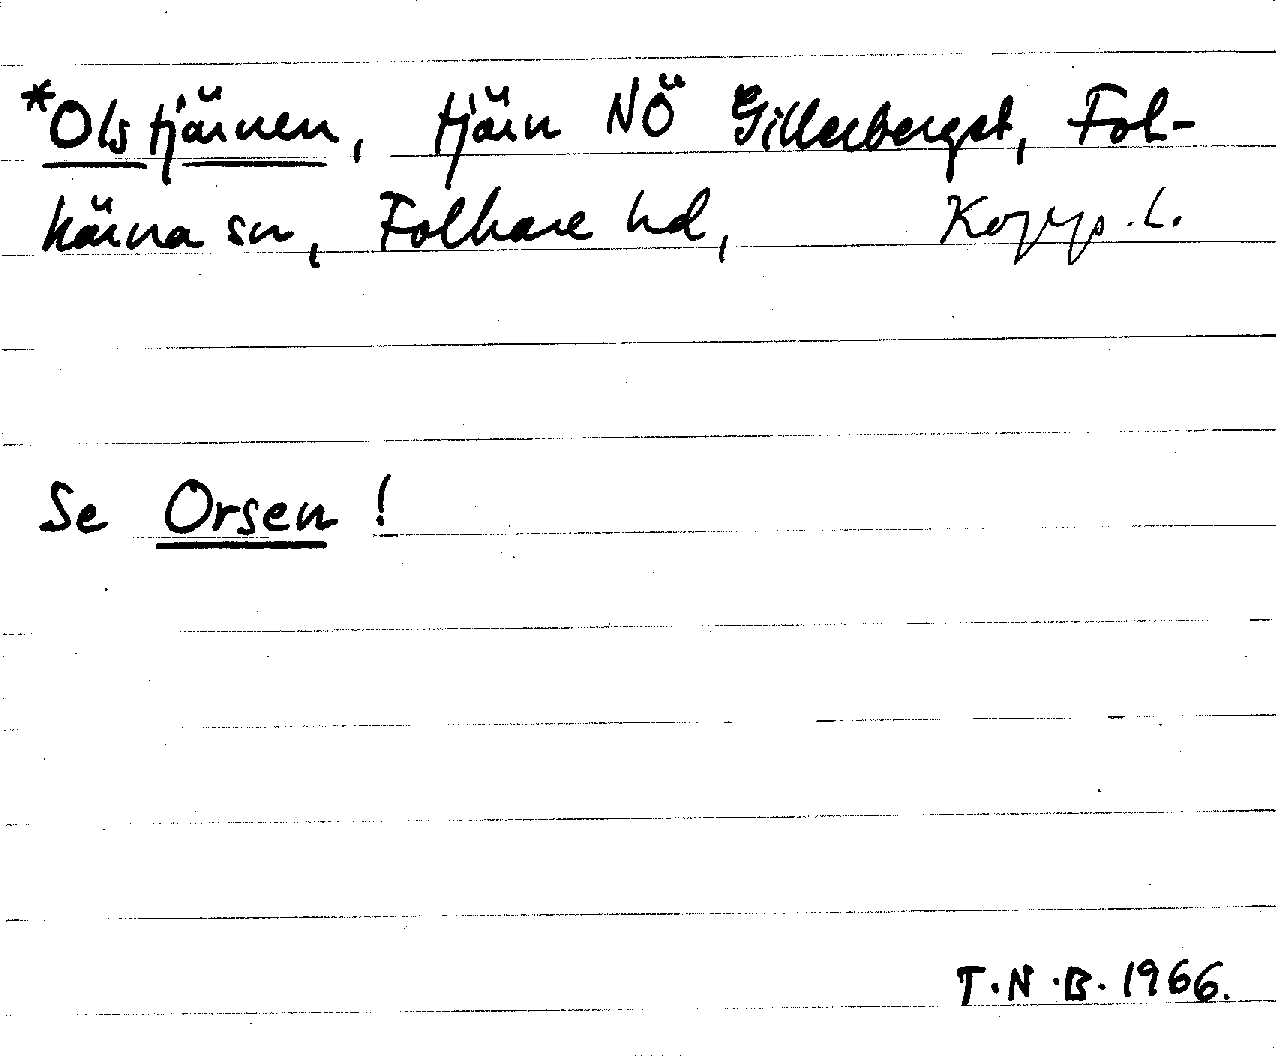 *Olstjärnen, tjärn NÖ Gillerberget, Fol-
kärna sn, Folkare hd, Kopp. l.
Se Orsen!
T.N.B. 1966.